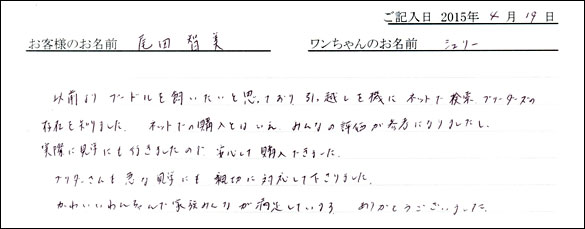 ご記入日 2015年 4月 19日
お客様のお名前 尾田智美 ワンちゃんのお名前 シェリー
以前より プードルを飼いたいと思っており 引っ越しを機に ネットで検索 ブリーダーズの
存在を知りました。 ネットでの購入とはいえ みんなの評価が参考になりましたし、
実際に見学にも行きましたので 安心して購入できました。
ブリーダーさんも急な見学にも 親切に対応して下さりました。
かわいいわんちゃんで家族みんなが満足しています ありがとうございました。